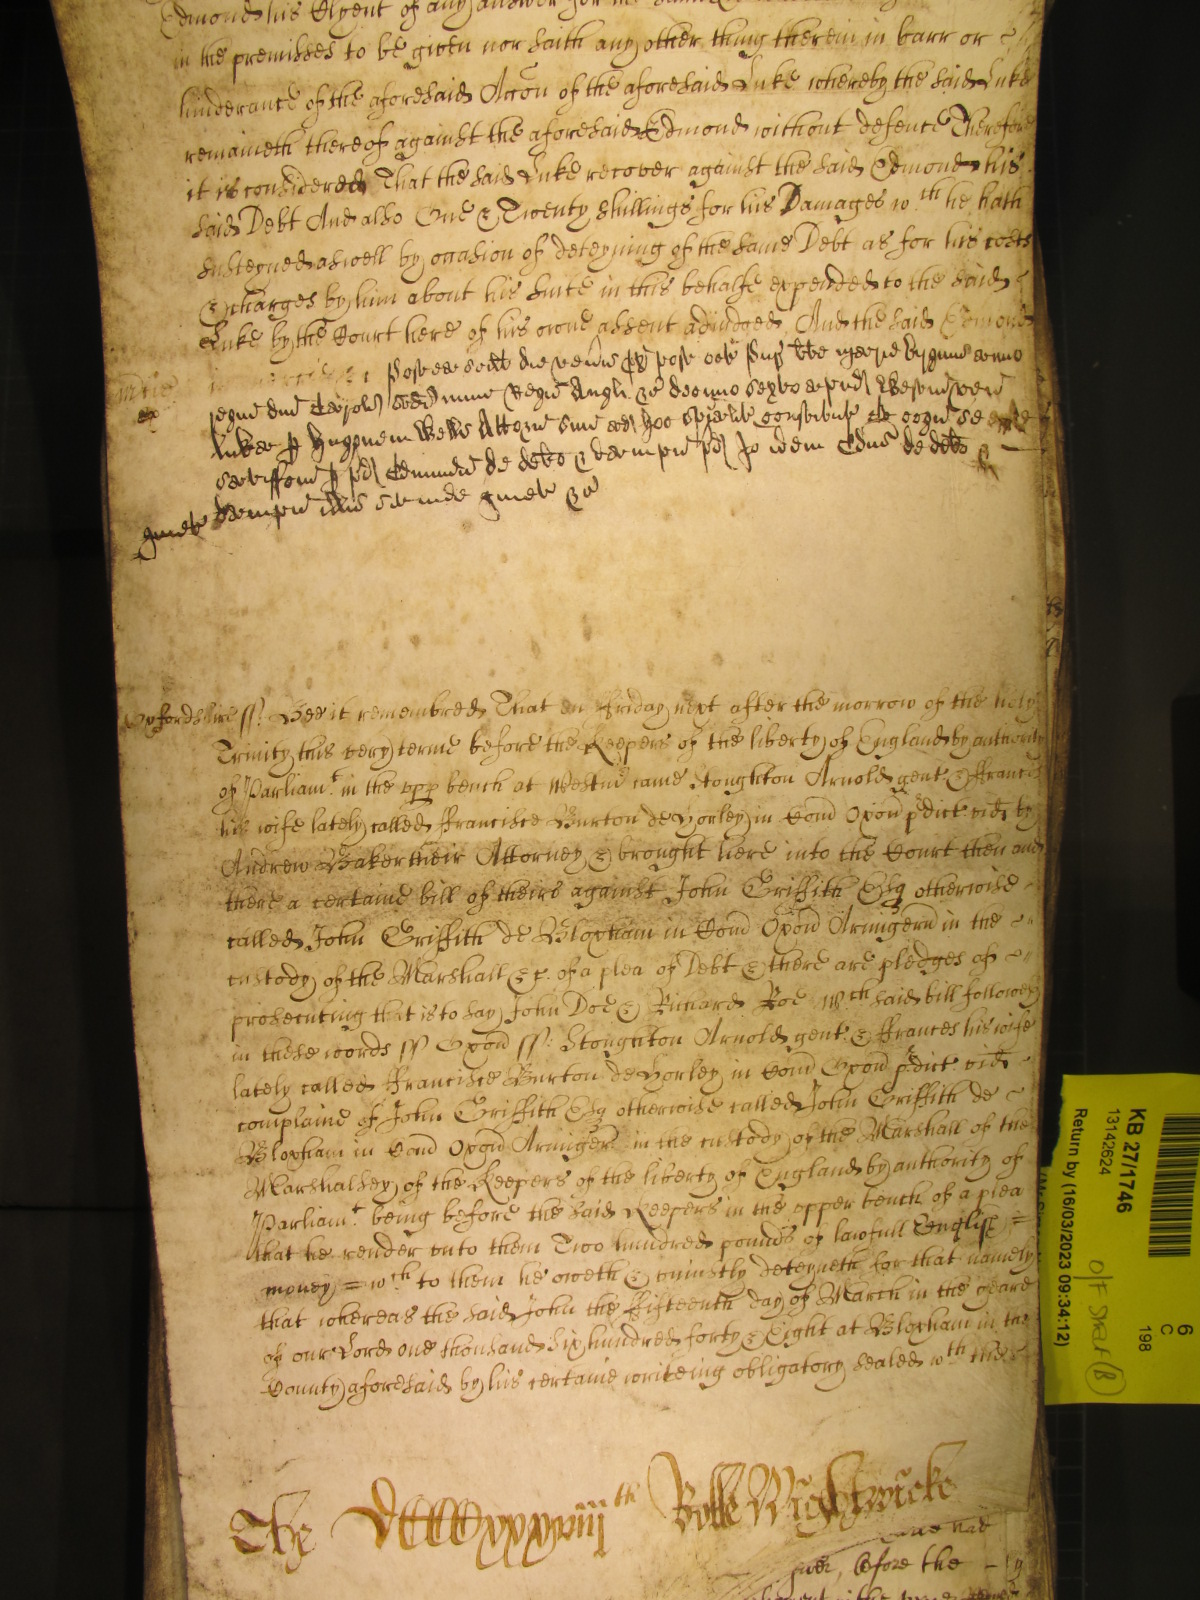 Edmond his Clyent of any answer for the same
in the premisses to be given nor saith any other thing therein in barr or
hinderance of the aforesaid Accon of the aforesaid Luke whereby the said Luke
remaineth thereof against the aforesaid Edmond without defence Therefore
it is considered That the said Luke recover against the said Edmond his
said Debt And also One & Twenty shillings for his Damages wth he hath
susteyned aswell by occasion of deteyning of the same Debt as for his costs
& charges by him about his suite in this behalfe expended to the said
Luke by the Court here of his owne assent adiudged And the said Edmond
in mercie : Postea scilt die veneris px post
regni dni Caroli scdi nunc Regis Angl &c decimo sexto
Lucas p Hugonem Wells Attorn suu ad hoc spialit constitut et cogn se
satisfcum p pd Edmundu de debo & dampn pd Io idem Edus de debo &
quiet dampn illis sit inde quiet &c
Oxfordshire ss: Bee it remembred That on Friday next after the morrow of the holy
Trinity this very terme before the Keepers of the liberty of England by authority
of Parliamt. in the upp bench at Westmr came Stoughton Arnold gent & Frances
his wife lately called Francisce Burton de Horley in Com Oxon pdict vid by
Andrew Baker their Attorney & brought here into the Court then and
there a certaine bill of theirs against John Griffith Esq otherwise
called John Griffith de Bloxham in Com Oxon Armigeru in the
custody of the Marshall &c. of a plea of Debt & there are pledges of
prosecuting that is to say John Doe & Richard Roe wch said bill followeth
in these words ss Oxon ss: Stoughton Arnold gent. & Frances his wife
lately called Francisce Burton de Horley in Com Oxon pdict. vid
complaine of John Griffith Esq otherwise called John Griffith de
Bloxham in Com Oxon Armiger in the custody of the Marshall of the
Marshalsey of the Keepers of the liberty of England by authority of
Parliamt. being before the said Keepers in the upper bench of a plea
that he render unto them Two hundred pounds of lawfull English =
money = wch to them he oweth & uniustly deteyneth for that namely
that whereas the said John the Fifteenth day of March in the yeare
of our Lord one thousand Six hundred forty & Eight at Bloxham in the
County aforesaid by his certaine writeing obligatory sealed wth the
The DCCCCxxxxviiith Rolle Wightwicke
before the
KB 27/1746
13142624
Return by (16/03/2023 09:34:12)
O/F Shelf (B)
6
C
198